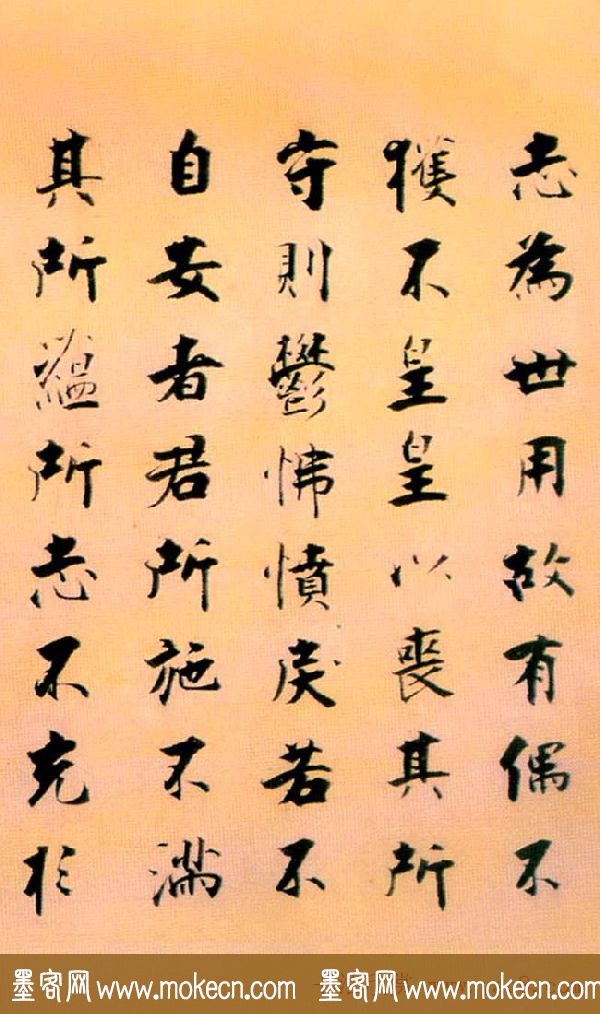 志為世用故有偶不
獲不皇皇以喪其所
守則鬱怫憤戾若不
自安者君所施不滿
其所蘊所志不充於
墨客网 www.mokecn.com 墨客网 www.mokecn.com